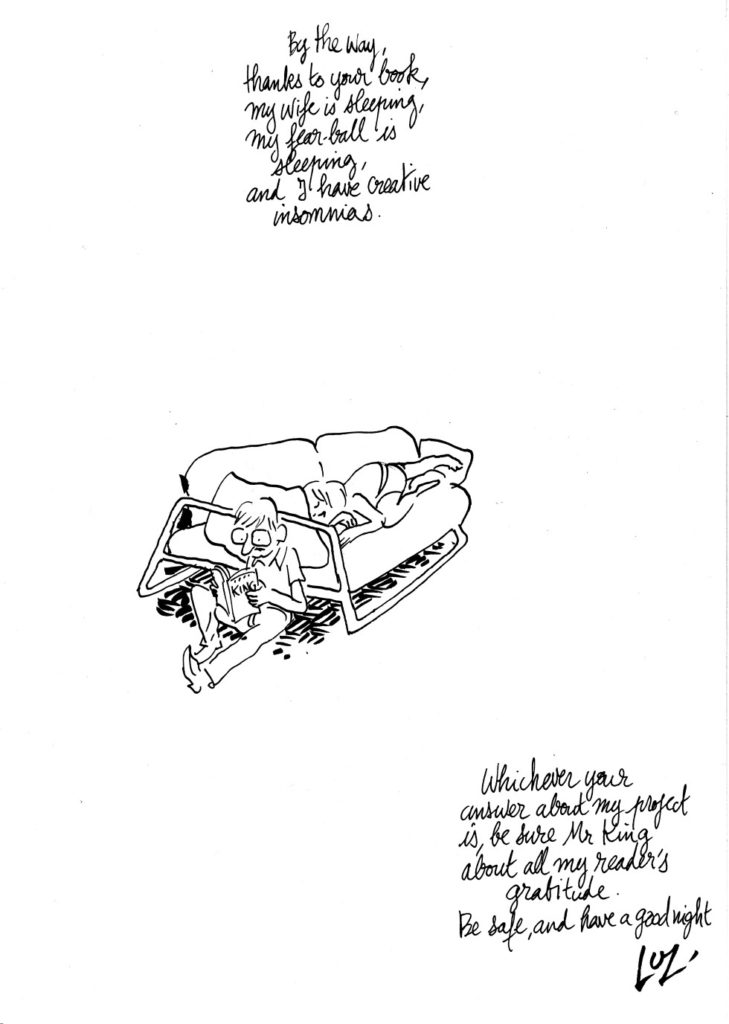 By the way,
thanks to your book,
my wife is sleeping,
my fear-ball is
sleeping,
and I have creative
insomnias.
KING
Whichever your
answer about my project
is, be sure Mr King
about all my reader's
gratitude.
Be safe, and have a good night
Luz